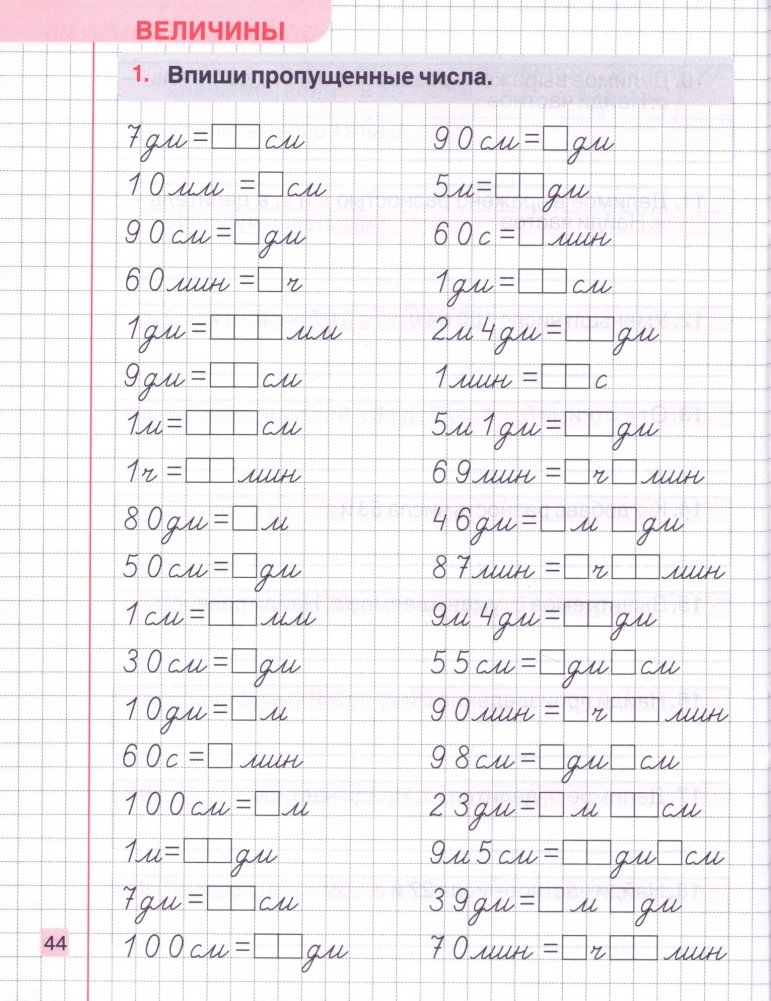 ВЕЛИЧИНЫ
1. Впиши пропущенные числа.
7 дм = □□ см
10 мм = □ см
90 см = □ дм
60 мин = □ ч
1 дм = □□□ мм
9 дм = □□ см
1 м = □□□ см
1 ч = □□ мин
80 дм = □ м
50 см = □ дм
1 см = □□ мм
30 см = □ дм
10 дм = □ м
60 с = □ мин
100 см = □ м
1 м = □□ дм
7 дм = □□ см
100 см = □□ дм
90 см = □ дм
5 м = □□ дм
60 с = □ мин
1 дм = □□ см
2 м 4 дм = □□ дм
1 мин = □□ с
5 м 1 дм = □□ дм
69 мин = □ ч □ мин
46 дм = □ м □ дм
87 мин = □ ч □□ мин
9 м 4 дм = □□ дм
55 см = □ дм □ см
90 мин = □ ч □□ мин
98 см = □ дм □ см
23 дм = □ м □□ см
9 м 5 см = □□ дм □ см
39 дм = □ м □ дм
70 мин = □ ч □□ мин
44